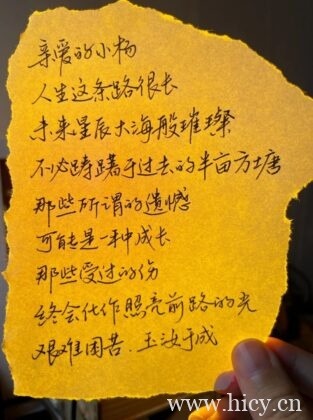 亲爱的小杨
人生这条路很长
未来星辰大海般璀璨
不必踌躇于过去的半亩方塘
那些所谓的遗憾
可能是一种成长
那些受过的伤
终会化作照亮前路的光
艰难困苦.玉汝于成
www.hicy.cn